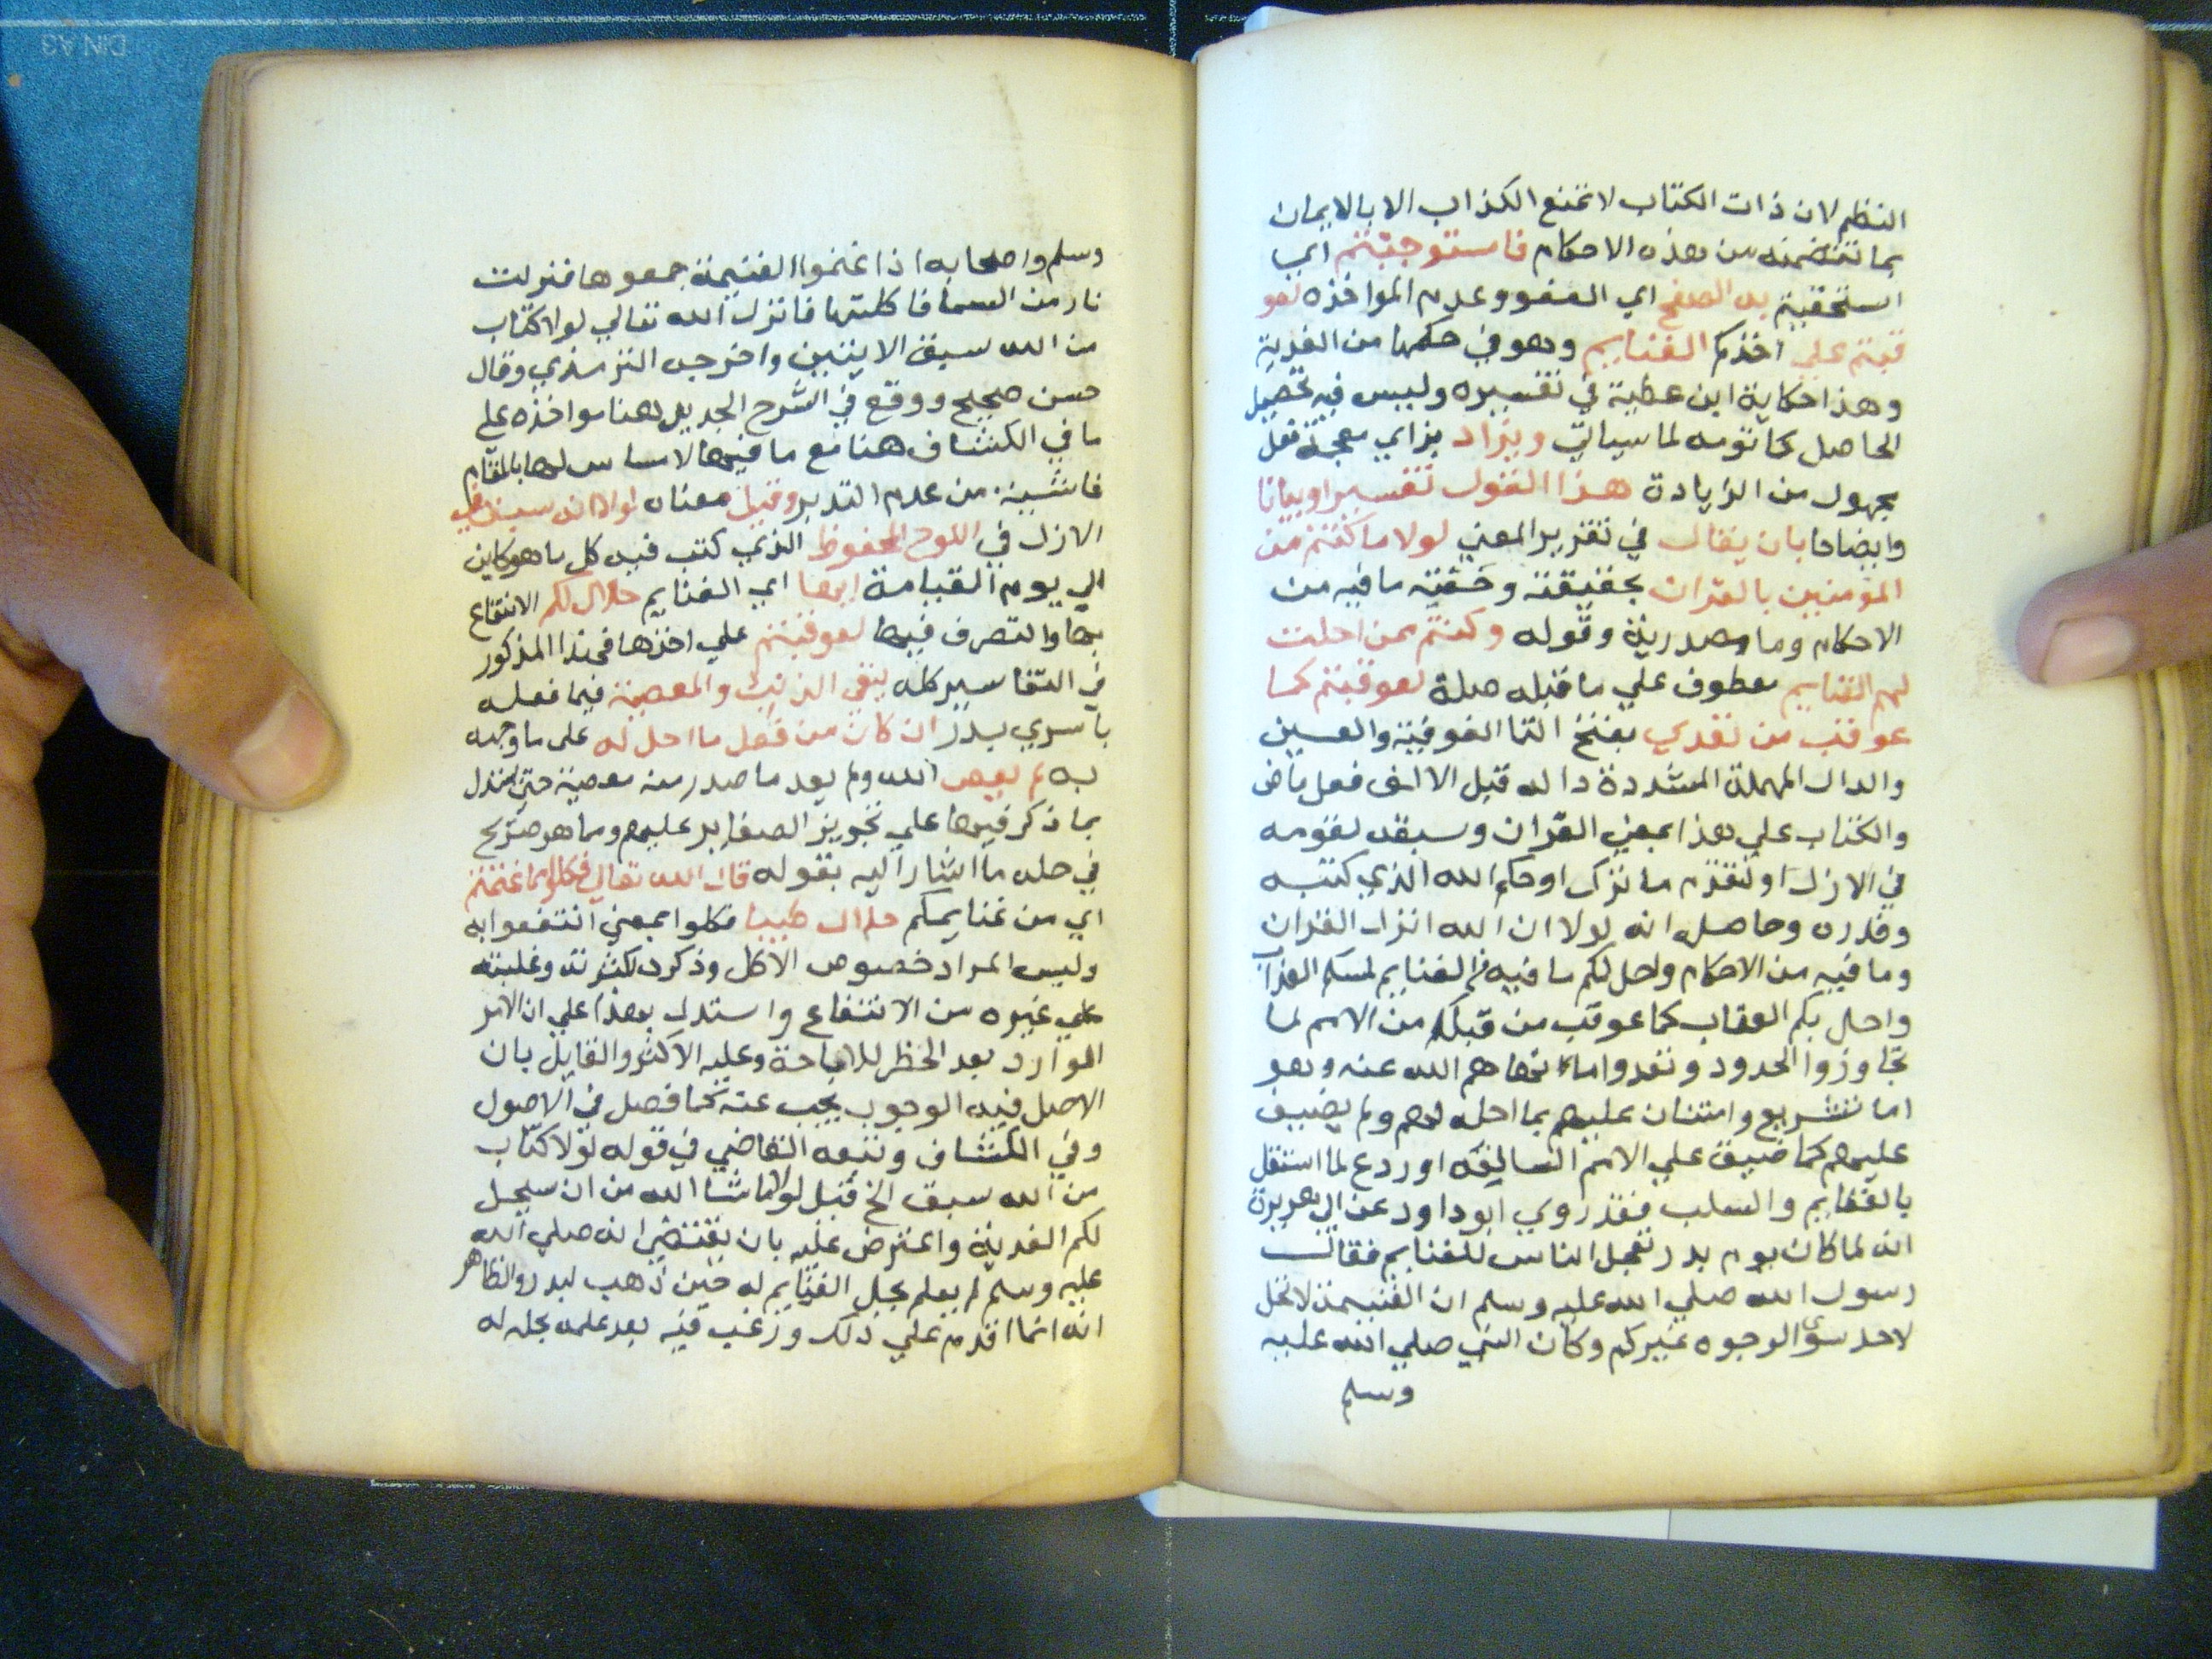 النظم لان ذات الكتاب لا تمنع الكذاب الا بالايمان
بما تتضمنه من هذه الاحكام فاستوجبتم اي
استحقيتم به الصفح اي العفو وعدم المواخذه لعو
قبتم علي اخذكم الغنايم وهو في حكمها من الفدية
وهذا حكاية ابن عطية في تفسيره وليس فيه تحصيل
الحاصل كما توهم لما سياتي ويزاد بزاي معجمة فعل
مجهول من الزيادة هذا القول تفسيرا وبيانا
وايضاحا بان يقال في تقرير المعني لولا ما كنتم من
المؤمنين بالقران بحقيقته وحقية ما فيه من
الاحكام وما مصدرية وقوله وكنتم ممن احلت
لهم الغنايم معطوف علي ما قبله صلة لعوقبتم كما
عوقب من تعدي بفتح التا الفوقية والعين
والدال المهملة المشددة داله قبل الالف فعل ماض
والكتاب علي هذا بمعني القران وسبقه لقومه
في الازل او لتقدم ما نزل او حكم الله الذي كتبه
وقدره وحاصله انه لولا ان الله انزل القران
وما فيه من الاحكام واحل لكم ما فيه من الغنايم لمسكم العذاب
واحل بكم العقاب كما عوقب من قبلكم من الامم لما
تجاوزوا الحدود وتعدوا ما نهاهم الله عنه وهو
اما تشريع وامتنان عليهم بما احله لهم ولم يضيق
عليهم كما ضيق علي الامم السالفة او ردع لما استقل
بالغنايم والسلب فقد روي ابو داود عن ابي هريرة
انه لما كان يوم بدر تعجل الناس للغنايم فقال
رسول الله صلي الله عليه وسلم ان الغنيمة لا تحل
لاحد سوي الوجوه غيركم وكان النبي صلي الله عليه
وسلم
وسلم واصحابه اذا غنموا الغنيمة جمعوها فنزلت
نار من السما فاكلتها فانزل الله تعالي لولا كتاب
من الله سبق الايتين واخرجه الترمذي وقال
حسن صحيح ووقع في الشرح الجديد هنا مواخذه علي
ما في الكشاف هنا مع ما فيها لا مساس لها بالمقام
ناشية من عدم التدبر وقيل معناه لولا انه سبق في
الازل في اللوح المحفوظ الذي كتب فيه كل ما هو كاين
الي يوم القيامة انها اي الغنايم حلال لكم الانتفاع
بها والتصرف فيها لعوقبتم علي اخذها فهذا المذكور
في التفاسير كله ينفي الذنب والمعصية فيما فعله
باسري بدر ان كان من فعل ما احل له علي ما وجه
به لم يعص الله ولم يعد ما صدر منه معصية حتي يستدل
بما ذكر فيها علي تجويز الصغاير عليهم ومما هو صريح
في حله ما اشار اليه بقوله قال الله تعالي فكلوا مما غنمتم
اي من غنايمكم حلالا طيبا فكلوا بمعني انتفعوا به
وليس المراد خصوص الاكل وذكره لكثرته وغلبته
علي غيره من الانتفاع واستدل بهذا علي ان الامر
الموارد بعد الحظر للاباحة وعليه الاكثر والقايل بان
الاصل فيه الوجوب يجيب عنه كما فصل في الاصول
وفي الكشاف وتبعه القاضي في قوله لولا كتاب
من الله سبق الخ قيل لولا ما شا الله من ان سيحل
لكم الفدية واعترض عليه بان يقتضي انه صلي الله
عليه وسلم لم يعلم بحل الغنايم له حين ذهب لبدر والظاهر
انه انما اقدم علي ذلك ورغب فيه بعد علمه بحله له